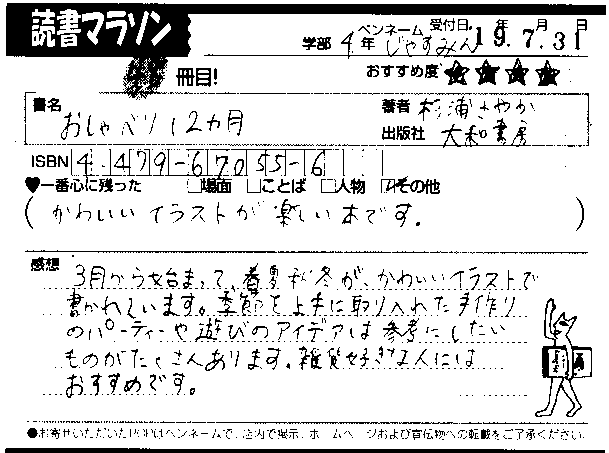 読書マラソン
冊目!
学部 4年 ペンネーム じゃすみん 受付日 19年7月31日
おすすめ度 ★★★★
書名 おしゃべり12ヵ月
著者 杉浦さやか
出版社 大和書房
ISBN 4-479-67055-6
♥一番心に残った □場面 □ことば □人物 ☑その他
(かわいいイラストが楽しい本です。)
感想 3月から始まって、春夏秋冬が、かわいいイラストで
書かれています。季節を上手に取り入れた手作り
のパーティーや遊びのアイデアは参考にしたい
ものがたくさんあります。雑貨好きな人には
おすすめです。
●お寄せいただいたPOPはペンネームで、店内で掲示、ホームページおよび宣伝物への転載をご了承ください。